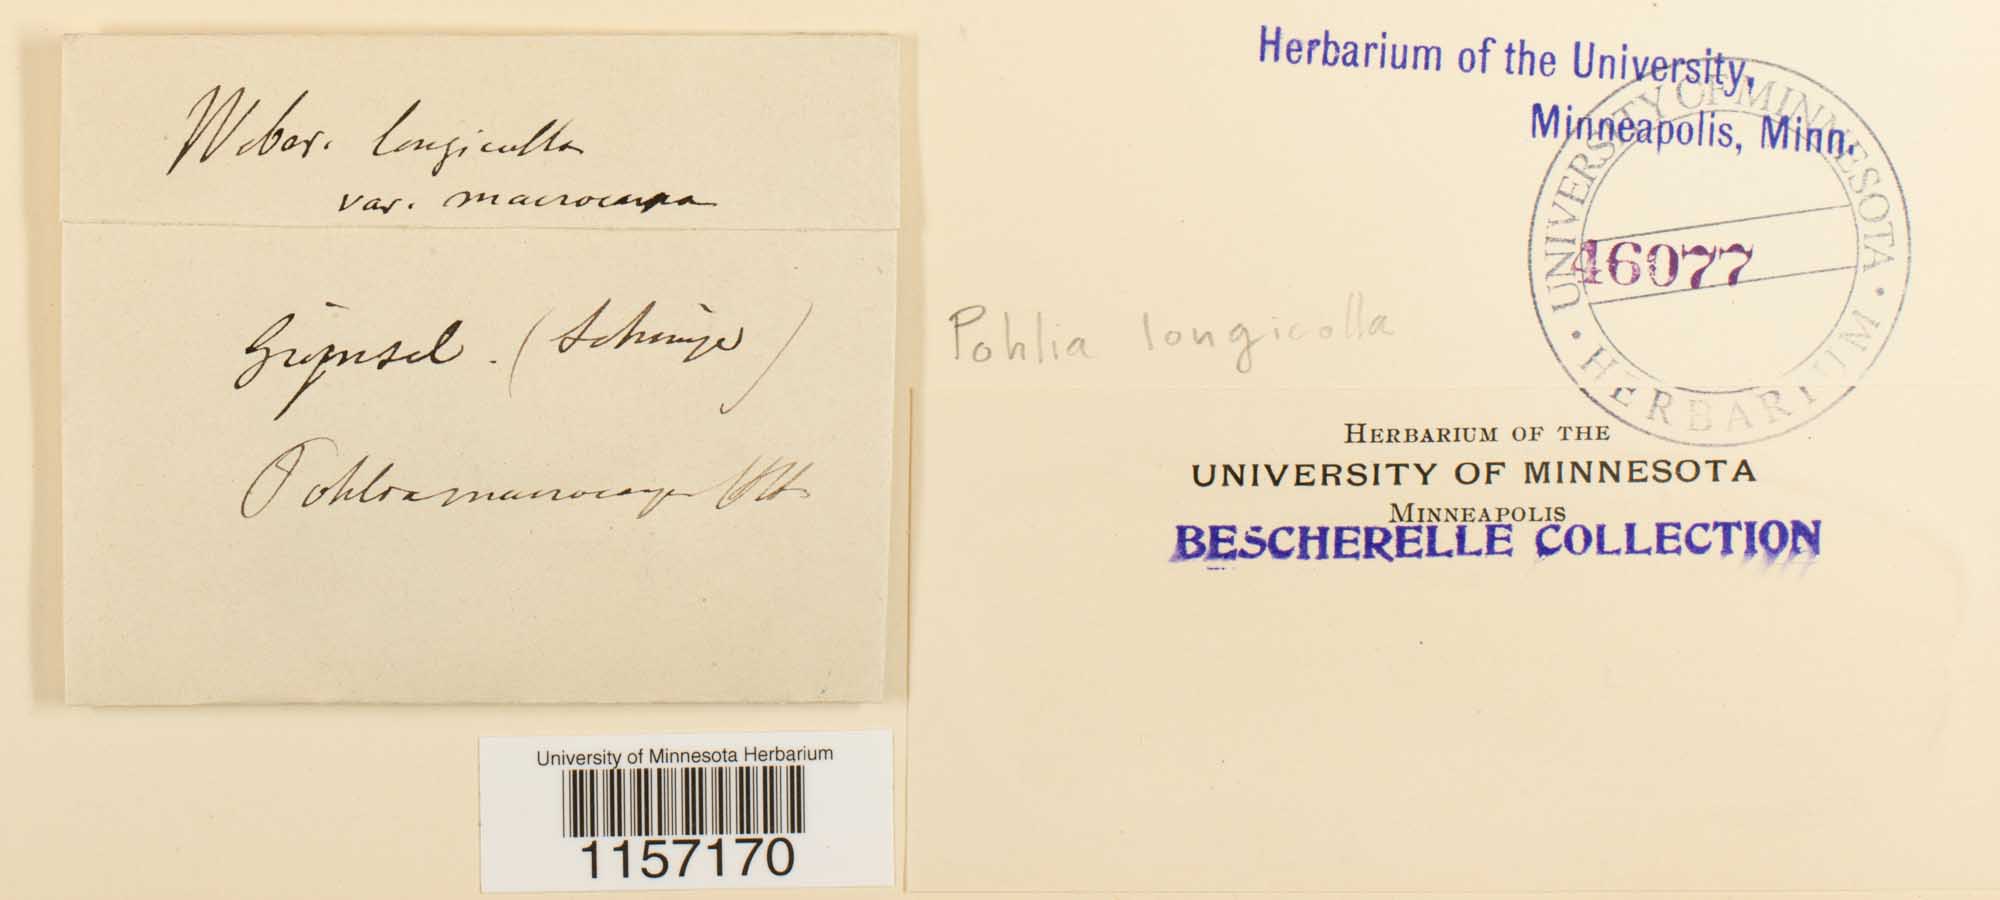 Weber. longicolla
var. macrocarpa
Grimsel. (Schimper)
Pohlia macrocarpa
Herbarium of the University,
Minneapolis, Minn.
· UNIVERSITY OF MINNESOTA ·
HERBARIUM
46077
Pohlia longicolla
HERBARIUM OF THE
UNIVERSITY OF MINNESOTA
MINNEAPOLIS
BESCHERELLE COLLECTION
University of Minnesota Herbarium
1157170